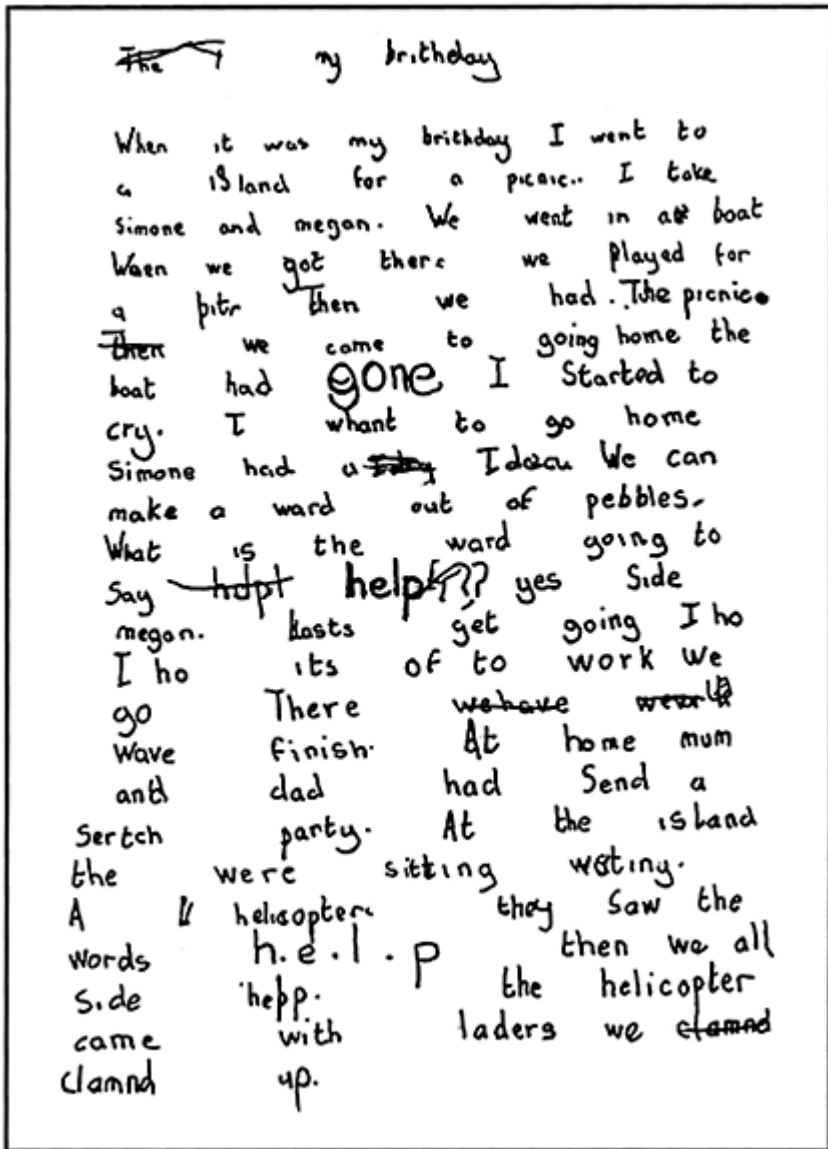 The my brithday
When it was my brithday I went to
a island for a picnic.. I take
Simone and megan. We went in a boat
Waen we got there we played for
a bitr Then we had. The picnic.
Then we come to going home the
boat had gone I Started to
cry. I whant to go home
Simone had a Idaeu We can
make a ward out of pebbles.
What is the ward going to
Say help??? yes Side
megan. Lasts get going I ho
I ho its of to work We
go There we have
wave finish. At home mum
and dad had Send a
Sertch party. At the island
the were sitting wating.
A helicopter they Saw the
words h.e.l.p then we all
Side help. the helicopter
came with laders we clamnd
clamnd up.